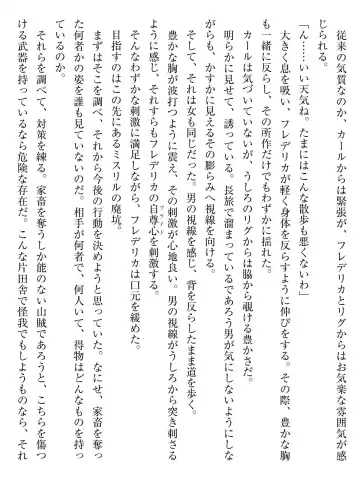 従来の気質なのか、カールからは緊張が、フレデリカとリグからはお気楽な雰囲気が感
じられる。
「ん……いい天気ね。たまにはこんな散歩も悪くないわ」
大きく息を吸い、フレデリカが軽く身体を反らすように伸びをする。その際、豊かな胸
も一緒に反らし、その所作だけでもわずかに揺れた。
カールは気づいていないが、うしろのリグからは脇から覗ける豊かさだ。
明らかに見せて、誘っている。長旅で溜まっているであろう男が気にしないようにしな
がらも、かすかに見えるその膨らみへ視線を向ける。
そして、それは女も同じだった。男の視線を感じ、背を反らしたまま道を歩く。
豊かな胸が波打つように震え、その刺激が心地良い。男の視線がうしろから突き刺さる
ように感じ、それすらもフレデリカの自尊心を刺激する。
そんなわずかな刺激に満足しながら、フレデリカは口元を緩めた。
目指すのはこの先にあるミスリルの廃坑。
まずはそこを調べ、それから今後の行動を決めようと思っていた。なにせ、家畜を奪っ
た何者かの姿を誰も見ていないのだ。相手が何者で、何人いて、得物はどんなものを持っ
ているのか。
それらを調べて、対策を練る。家畜を奪うしか能のない山賊であろうと、こちらを傷つ
ける武器を持っているなら危険な存在だ。こんな片田舎で怪我でもしようものなら、それ